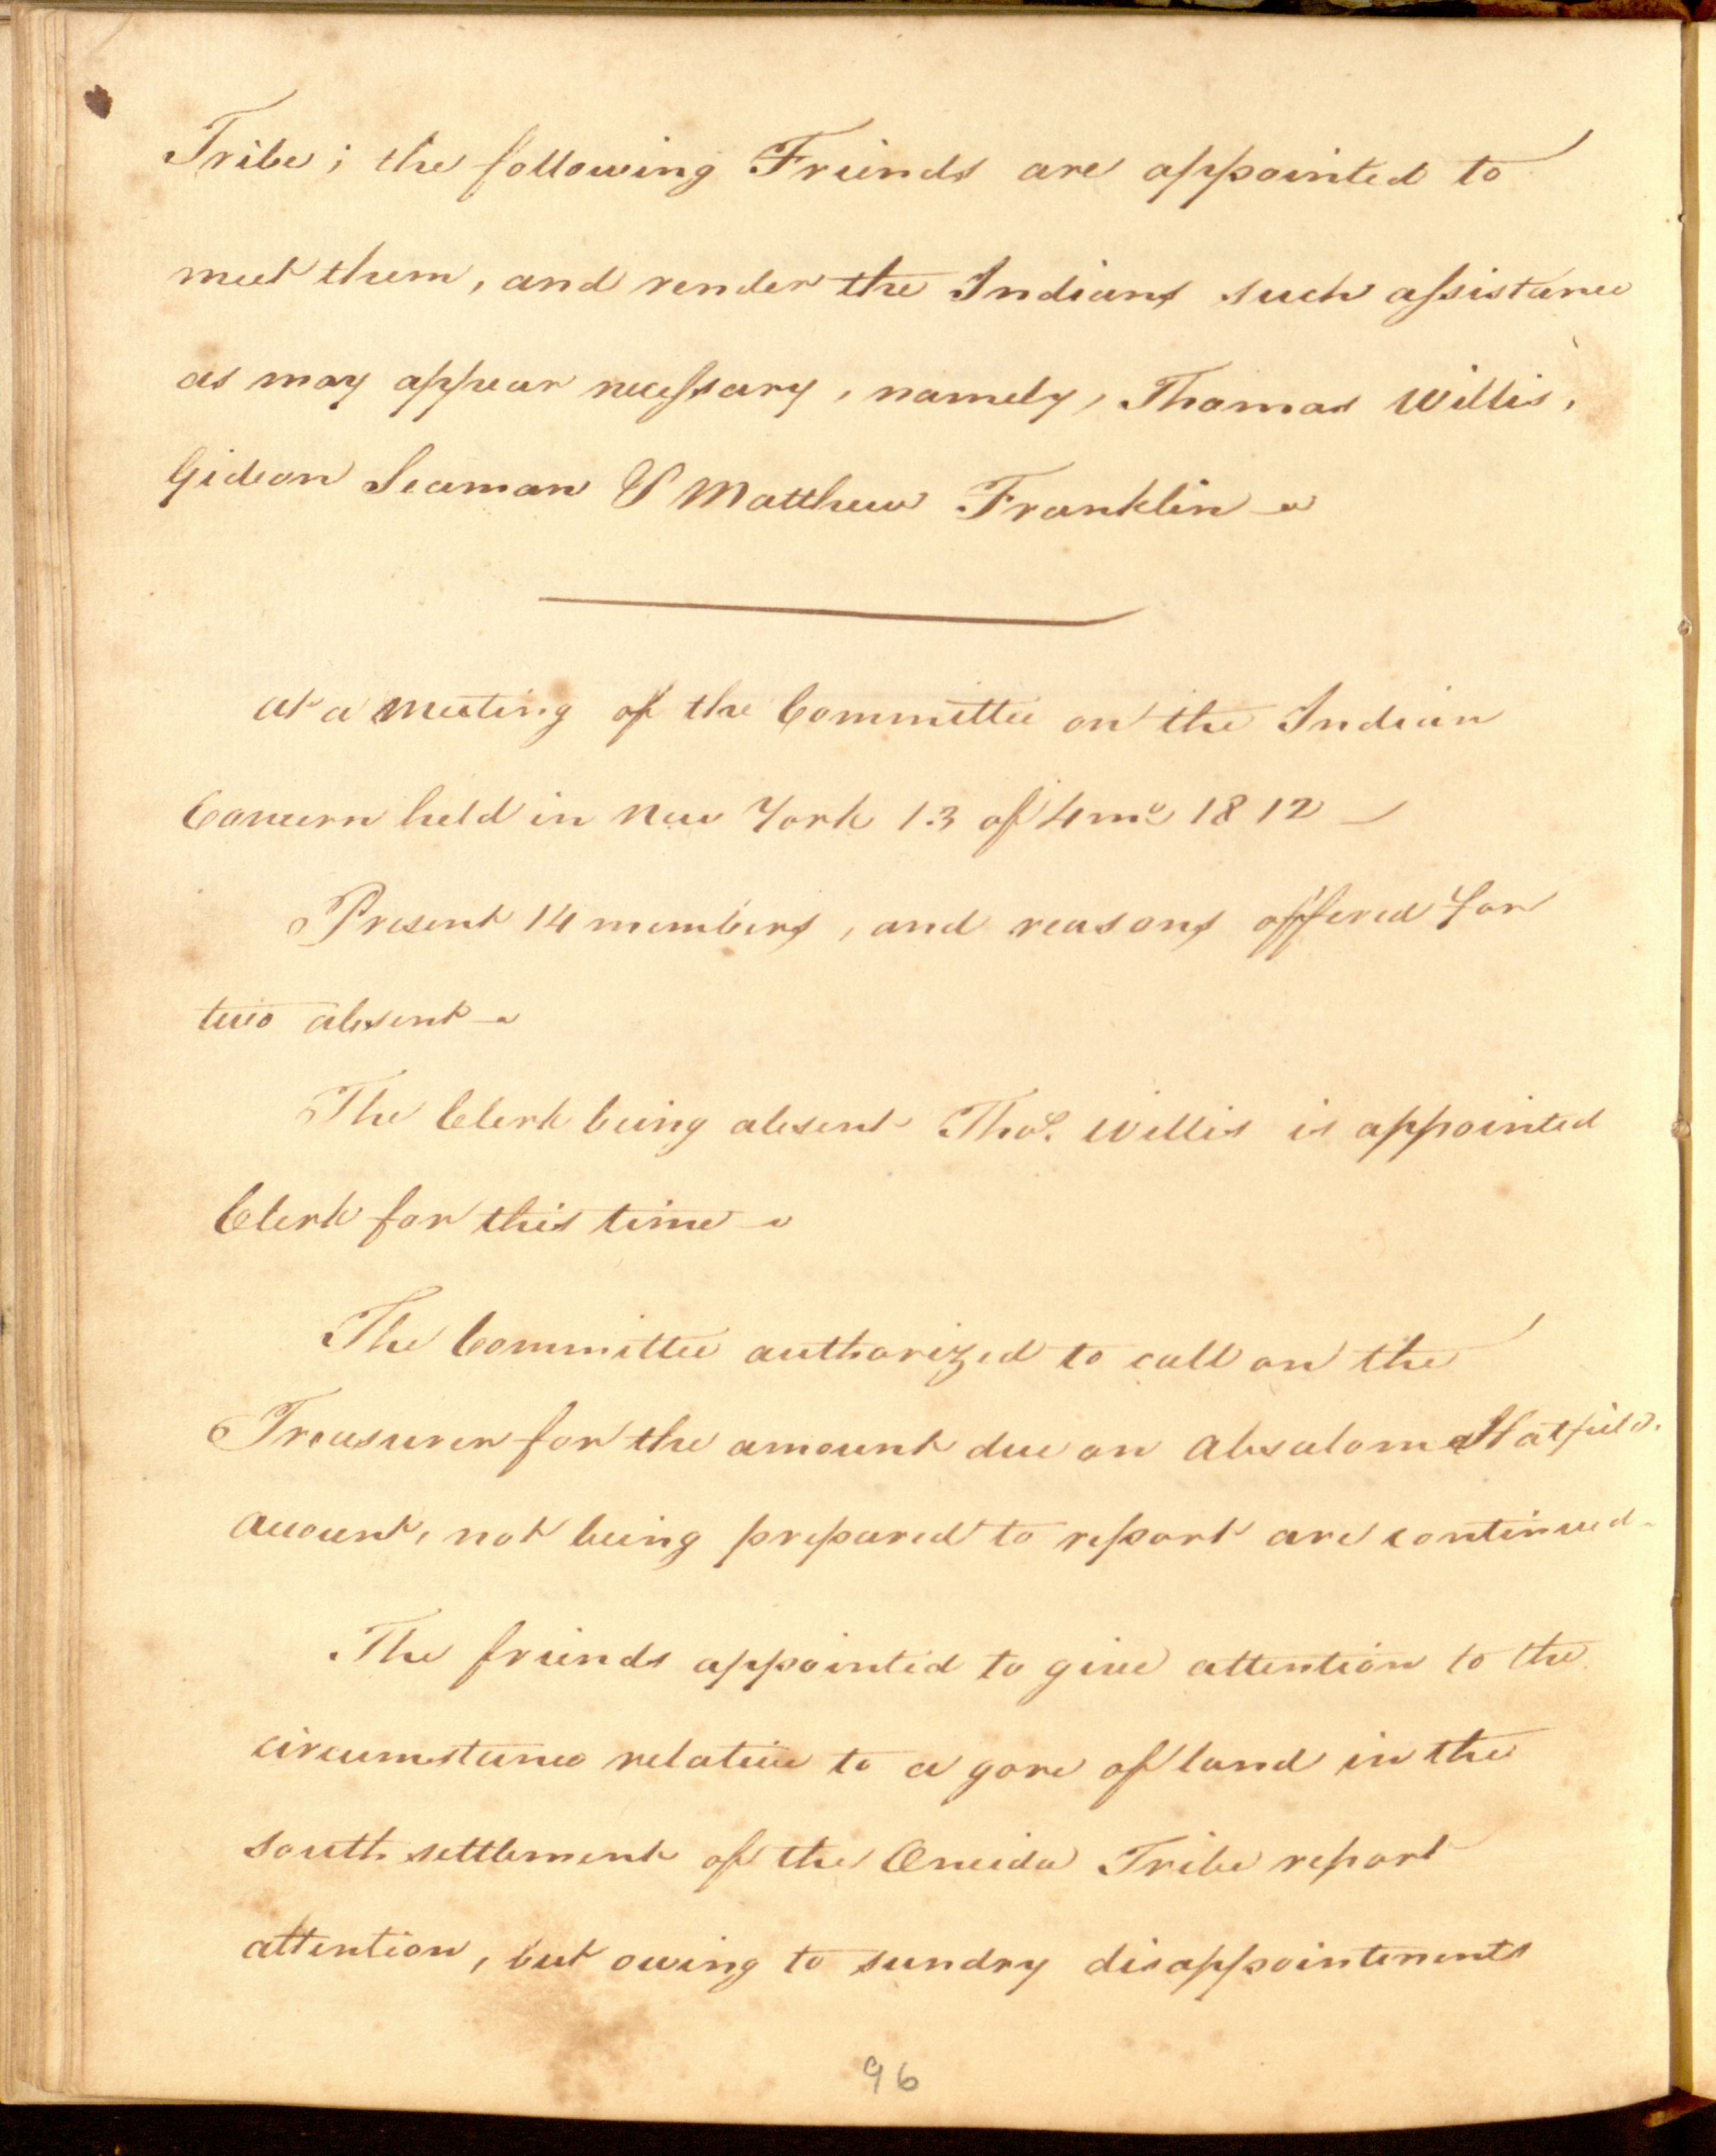 Tribe; the following Friends are appointed to
meet them, and render the Indians such assistance
as may appear necessary, namely, Thomas Willis,
Gideon Seaman & Matthew Franklin
at a meeting of the Committee on the Indian
Concern held in New York 13 of 4mo 1812
Present 14 members, and reasons offered for
two absent
The Clerk being absent Thos. Willis is appointed
Clerk for this time
The Committee authorized to call on the
Treasurer for the amount due on Absalom Hatfield
account, not being prepared to report are continued
The friends appointed to give attention to the
circumstance relative to a gore of land in the
south settlement of the Oneida Tribe report
attention, but owing to sundry disappointments
96